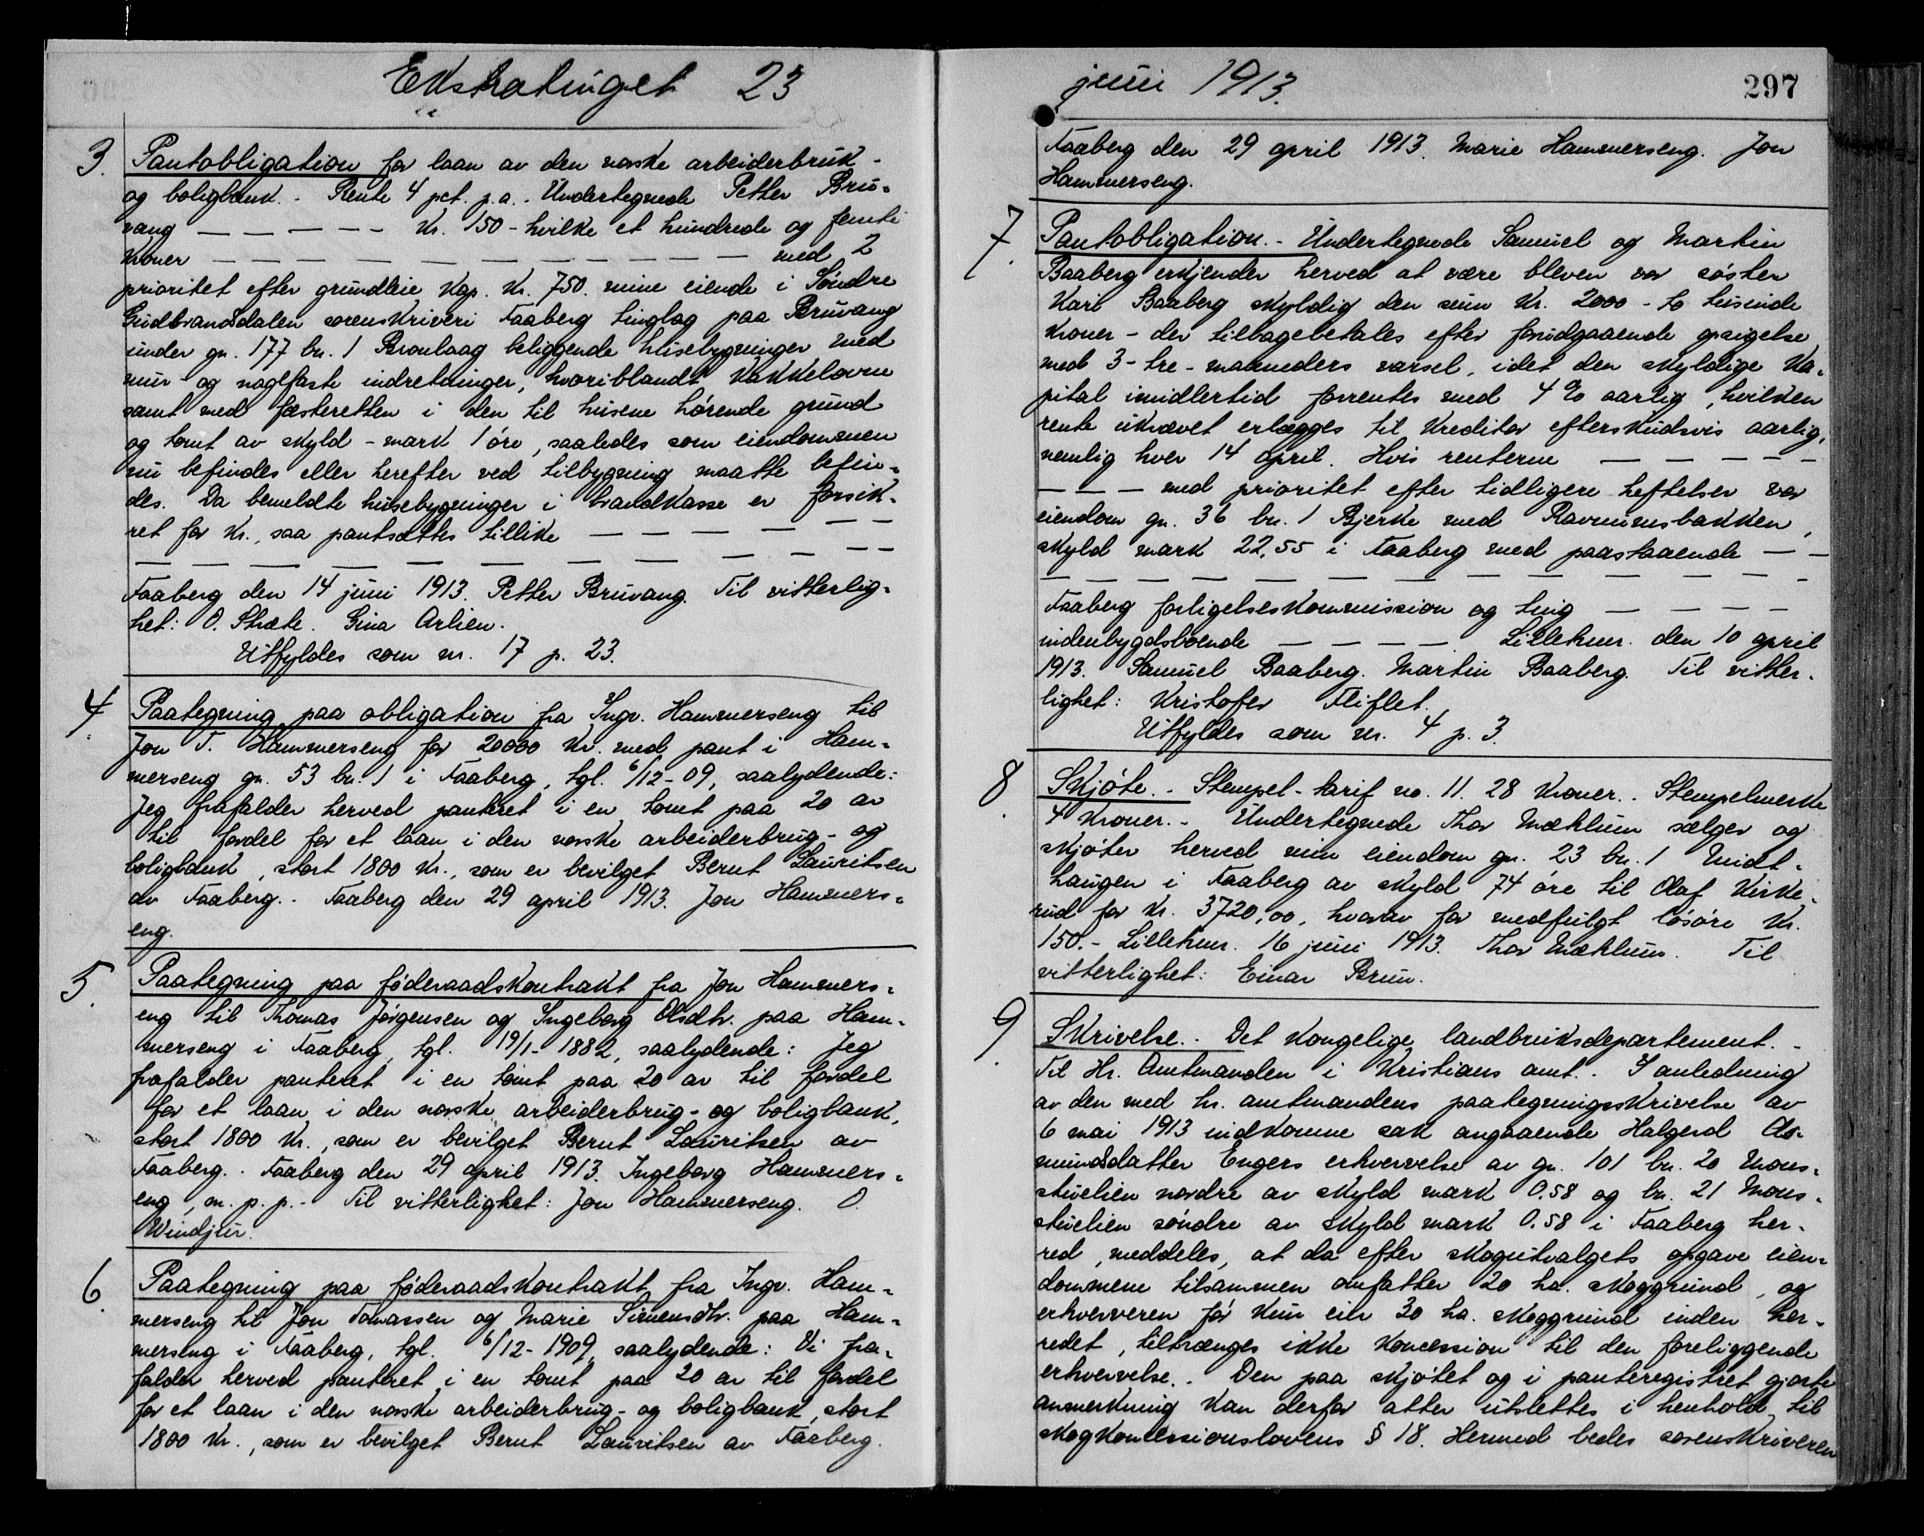 Ekstratinget 23
3. Pantobligation for laan av den norske arbeiderbruk-
og boligbank. - Rente 4 pct. p.a. - Undertegnede Petter Bru-
vang — — — — — Kr. 150 - hvilke et hundrede og femti
Kroner — — — — — — — — — — — — med 2
prioritet efter grundleie Kap. Kr. 750. mine eiende i Søndre
Gudbrandsdalen sorenskriveri Faaberg tinglag paa Bruvang
under gn. 177 bn. 1 Broulaag beliggende husebygninger med
mur- og naglfaste indretninger, hvoriblandt Kakkelovne
samt med fæsteretten i den til husene hørende grund
og tomt av skyld - mark 1 øre, saaledes som eiendommen
nu befindes eller herefter ved tilbygning maatte befin-
des. Da bemeldte husebygninger i brandkasse er forsik-
ret for Kr., saa pantsættes tillike — — — — — —
— — — — — — — — — — — — —
Faaberg den 14 juni 1913. Petter Bruvang. Til vitterlig-
het: O. Stræte. Gina Arlien.
Utfyldes som nr. 17 p. 23.
4. Paategning paa obligation fra Ingv. Hammerseng til
Jon T. Hammerseng for 20000 Kr. med pant i Ham-
merseng gn. 53 bn. 1 i Faaberg, tgl. 6/12-09, saalydende:
Jeg frafalder herved panteret i en tomt paa 20 ar
til fordel for et laan i den norske arbeiderbrug- og
boligbank, stort 1800 Kr., som er bevilget Bernt Lauritsen
av Faaberg. - Faaberg den 29 april 1913. Jon Hammers-
eng.
5. Paategning paa føderaadskontrakt fra Jon Hammers-
eng til Thomas Jørgensen og Ingeborg Olsdtr. paa Ham-
merseng i Faaberg, tgl. 19/1-1882, saalydende: Jeg
frafalder panteret i en tomt paa 20 ar til fordel
for et laan i den norske arbeiderbrug- og boligbank,
stort 1800 Kr., som er bevilget Bernt Lauritsen av
Faaberg. - Faaberg den 29 april 1913. Ingeborg Hammers-
eng, m. p. p. - Til vitterlighet: Jon Hammerseng. O.
Windjur.
6. Paategning paa føderaadskontrakt fra Ingv. Ham-
merseng til Jon Tomassen og Marie Simensdtr. paa Ham-
merseng i Faaberg, tgl. 6/12-1909, saalydende: Vi fra-
falder herved panteret i en tomt paa 20 ar til fordel
for et laan i den norske arbeiderbrug- og boligbank, stort
1800 Kr., som er bevilget Bernt Lauritsen av Faaberg.
juni 1913.
297
Faaberg den 29 april 1913. Marie Hammerseng. Jon
Hammerseng.
7. Pantobligation. - Undertegnede Samuel og Martin
Baaberg erkjender herved at være bleven vor søster
Kari Baaberg skyldig den sum Kr. 2000 - to tusinde
Kroner - der tilbagebetales efter forudgaaende opsigelse
med 3 - tre - maaneders varsel, idet den skyldige Ka-
pital imidlertid forrentes med 4 % aarlig, hvilken
rente ukrævet erlægges til Kreditor efterskudsvis aarlig,
nemlig hver 14 april. Hvis renterne — — — — —
— — — med prioritet efter tidligere heftelser vor
eiendom gn. 36 bn. 1 Bjerke med Ravnumsbakken,
skyld mark 22,55 i Faaberg med paastaaende — —
— — — — — — — — — — — — —
Faaberg forligelseskommission og ting — — — —
utenbygdsboende — — — — — Lillehmr. den 10 april
1913. Samuel Baaberg. Martin Baaberg. Til vitter-
lighet: Kristofer Fliflet.
Utfyldes som nr. 4 p. 3.
8. Skjøte. - Stempel-tarif no. 11. 28 Kroner. - Stempelmerke
4 Kroner. - Undertegnede Thor Mæhlum sælger og
skjøter herved min eiendom gn. 23 bn. 1 Midt-
haugen i Faaberg av skyld 74 øre til Olaf Kirke-
rud for Kr. 3720,00, hvorav for medfulgt løsøre Kr.
150. - Lillehmr. 16 juni 1913. Thor Mæhlum. Til
vitterlighet: Einar Brun.
9. Skrivelse. - Det Kongelige landbruksdepartement. -
Til Hr. Amtmanden i Kristians amt. - I anledning
av den med hr. amtmandens paategningsskrivelse av
6 mai 1913 indkomne sak angaaende Halgerd As-
mundsdatter Engers erhvervelse av gn. 101 bn. 20 Mons-
stuelien nordre av skyld mark 0.58 og bn. 21 Mons-
stuelien søndre av skyld mark 0.58 i Faaberg her-
red, meddeles, at da efter skogutvalgets opgave eien-
dommene tilsammen omfatter 20 ha. skoggrund, og
erhververen før kun eier 30 ha. skoggrund inden her-
redet, tiltrænges ikke koncession til den foreliggende
erhvervelse. - Den paa skjøtet og i panteregistret gjorte
anmerkning kan derfor atter utslettes i henhold til
skogkoncessionslovens § 18. Hermed bedes sorenskriveren